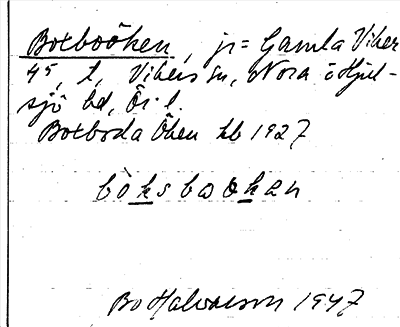 Boxboöken, jr= Gamla Viker
4⁵, t, Vikers sn, Nora o Hjul-
sjö bd, Ör. l.
Boxboda Öken hb 1927
bòksbωøkan
Bo Halvarson 1947